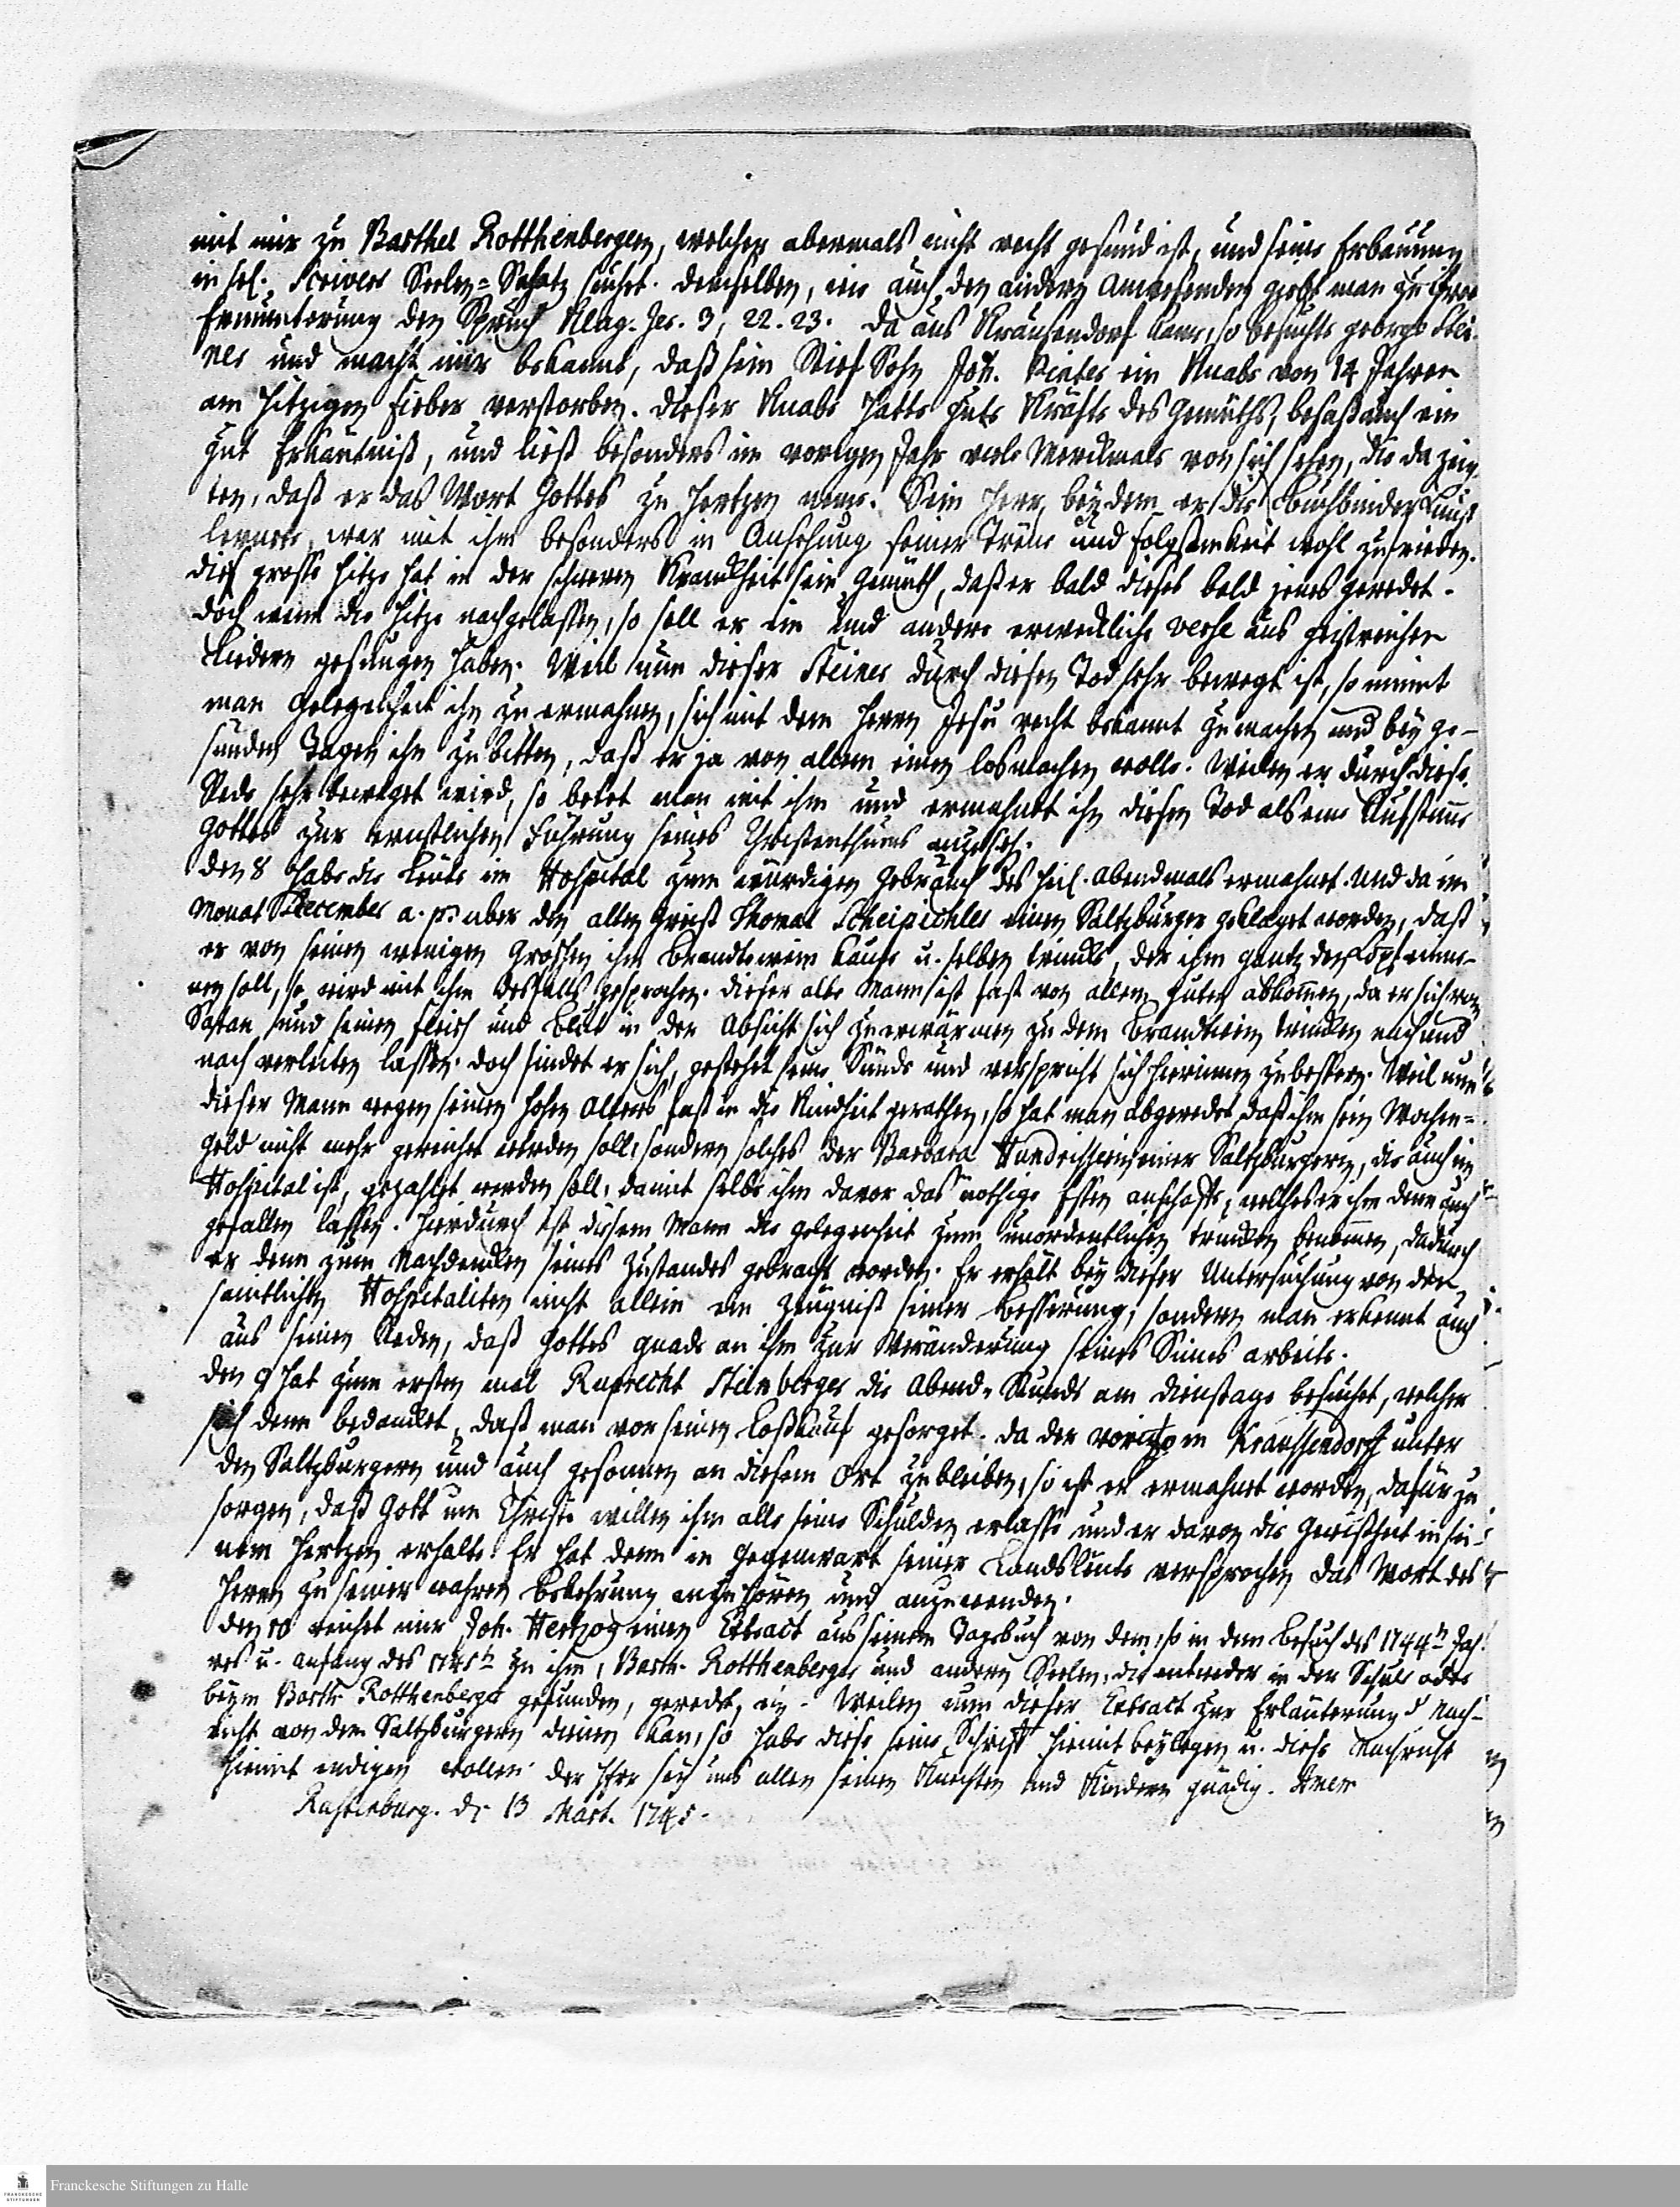 mit mir zu Barthel Rotthenbergern, welcher abermals nicht recht gesund ist, und seine Erbauung
in sel. Scrivers Seelen=Schatz suchet. demselben, wie auch den andern Anwesenden giebt man zu ihrer
Ermunterung den Spruch Klag. Jer. 3, 22. 23. da aus Krausendorf kam, so besuchte george Stei-
ner und macht mir bekannt, daß sein Stief Sohn Joh. ein Knabe von 14 Jahren
am hitzigen Fieber verstorben. Dieser Knabe hatte gute Kräfte des Gemüths, besaß auch ein
gut Erkäntniß, und ließ besonders im vorigen Jahr viele Merckmale von sich sehen, die da zeig-
ten, daß er das Wort Gottes zu Hertzen neme. Sein Herr, bey dem er die Buchbinder Kunst
lernete, war mit ihm besonders in Ansehung seiner Treue und Folgsamkeit wohl zufrieden.
die grosse Hitze hat in der schweren Kranckheit sein Gemüth, daß er bald dieses bald jenes geredet.
doch wenn die Hitze nachgelassen, so soll er ein und andere erweckliche Verse aus geistreichen
Liedern gesungen haben. Weil nun dieser Steiner durch diesen Tod sehr bewegt ist, so nimt
man Gelegenheit ihn zu ermahnen, sich mit dem Herrn Jesu recht bekannt zu machen und bey ge-
sunden Tagen ihn zu bitten, daß er ja von allem einen losmachen wolle. Weilen er durch diese
Rede sehr beweget wird, so betet man mit ihm und ermahnet ihn diesen Tod als eine Rufstimme
Gottes zur ernstlichen Führung seines Christenthums anzuseh.
den 8 habe die Leute im Hospital zum würdigen Gebrauch des heil. Abendmals ermahnet. Und da im
Monat December a. p. über den alten Greiß Thomas einen Saltzburger geklaget worden, daß
er von seinen wenigen Groschen ihm Brandtewein kaufe u. selben trincke, der ihm gantz den Kopf einne-
men soll, so wird mit ihm desfalls gesprochen. dieser alte Mann ist fast von allem guten abkommen, da er sich vom
Satan und seinen Fleisch und Blut in der Absicht sich zu erwärmen zu dem Brandtwein trincken nach und
nach verleiten lassen. doch findet er sich, gestehet seine Sünde und verspricht sich hierinnen zu bessern. Weil nun
dieser Mann wegen seines hohen Alters fast in die Kindheit gerathen, so hat man abgeredet daß ihm sein Wochen=
geld nicht mehr gereichet werden soll, sondern solches der Barbara Hundrisserin einer Saltzburgerin, die auch im
Hospital ist, gezahlet werden soll, damit selbe ihm davor das nöthige Essen anschaffe, welches er ihm denn auch
gefallen lassen. Hierdurch ist diesem Mann die Gelegenheit zum unordentlichen trincken benommen, dadurch
er denn zum Nachdencken seines Zustandes gebracht worden. Er erhält bey dieser Untersuchung von den
sämtlichen Hospitaliten nicht allein ein Zeugniß seiner Besserung, sondern man erkennt auch
aus seinen Reden, daß Gottes gnade an ihm zur Veränderung seines Sinnes arbeite.
den 9 hat zum ersten mal Ruprecht Steinberger die Abend-Stunde am Dienstage besuchet, welcher
sich denn bedancket, daß man vor seinen Loßkauf gesorget. da der voritzo in Kraussendorff unter
den Saltzburgern und auch gesonnen an diesem Ort zu bleiben, so ist er ermahnet worden, dafür zu
sorgen, daß Gott um Christi willen ihm alle seine Schulden erlasse und er davon die Gewißheit in sei-
nem Hertzen erhalte. Er hat denn in Gegenwart seiner Landsleute versprochen das Wort des
Herrn zu seiner wahren Bekehrung anzuhören und anzuwenden.
den 10 reichet mir Joh. Hertzog einen Extract aus seinem Tagebuch von dem, so in dem Besuch des 1744ten Jah-
res u. anfang des 1745ten zu ihm, Barth. Rotthenberger und andern Seelen, die entweder in der Schule oder
beym Barth. Rotthenberger gefunden, geredet, ein. Weilen nun dieser Extract zur Erläuterung d Nach-
richt von den Saltzburgern dienen kan, so habe diese seine Schrift hiemit beylegen u. diese Nachricht
hiemit endigen wollen. der Herr sey uns allen seinen Knechten und Kindern gnädig. Amen
Rastenburg. d. 13 Mart. 1745.
Franckesche Stiftungen zu Halle
FRANCKESCHE
STIFTUNGEN